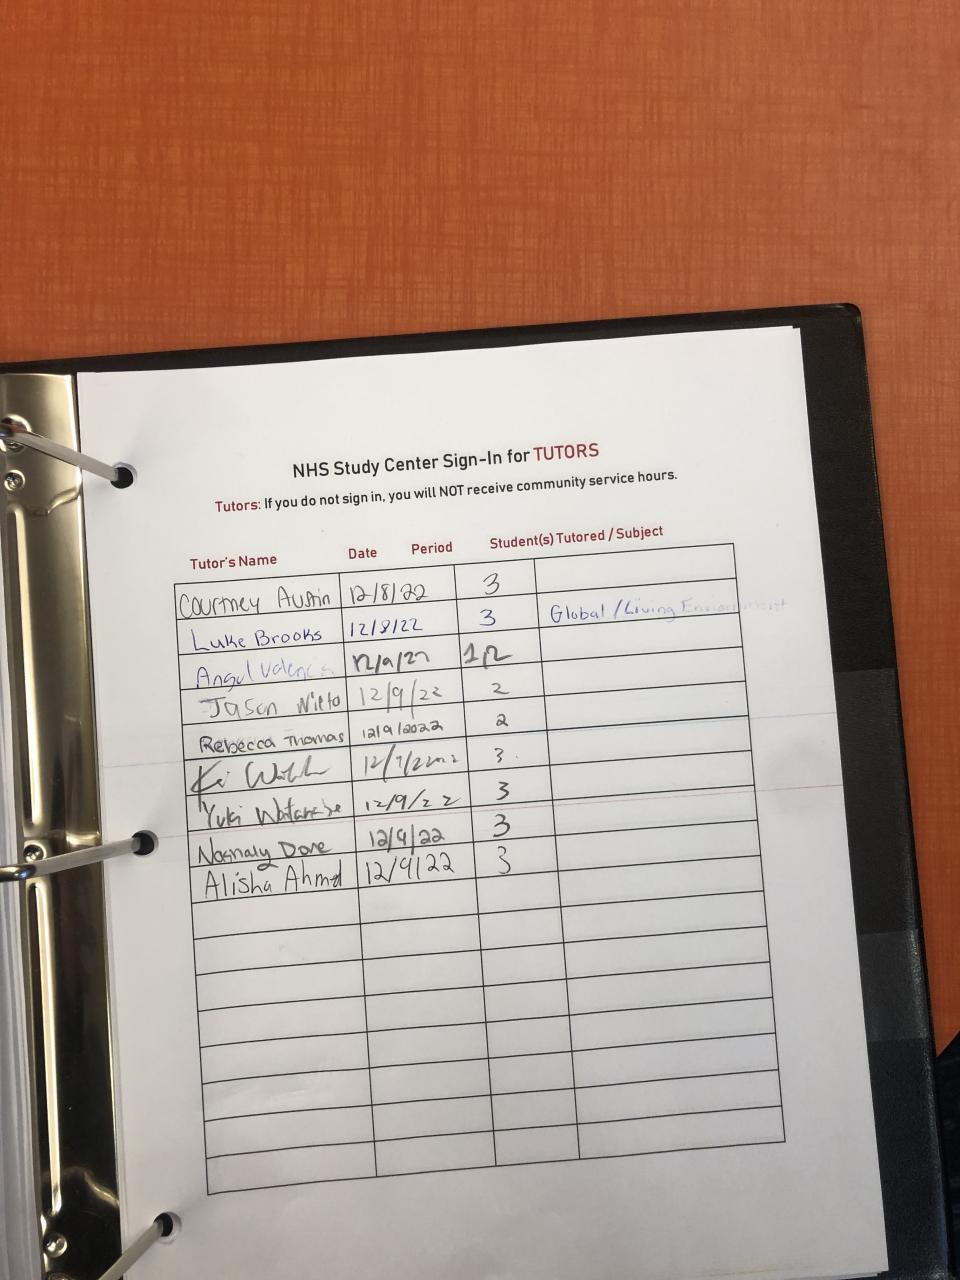 NHS Study Center Sign-In for TUTORS
Tutors: If you do not sign in, you will NOT receive community service hours.
Tutor's Name Date Period Student(s) Tutored / Subject
Courtney Austin 12/8/22 3
Luke Brooks 12/8/22 3 Global / Living Environment
Angel Valencia 12/9/22 1/2
Jason Nieto 12/9/22 2
Rebecca Thomas 12/9/2022 2
3
Yuki Watanabe 12/9/22 3
12/9/22 3
Alisha Ahmed 12/9/22 3